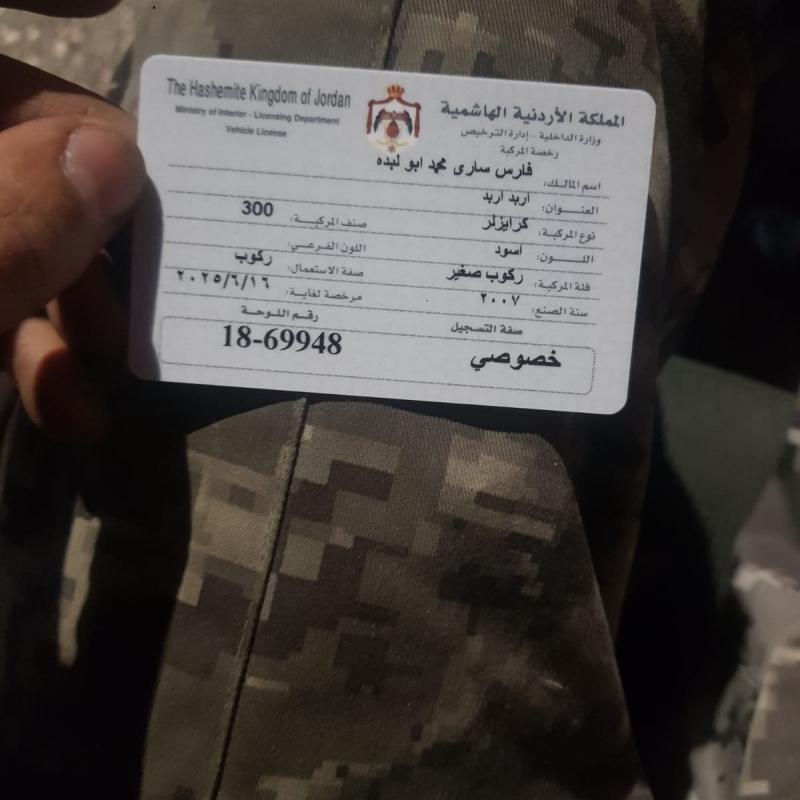 The Hashemite Kingdom of Jordan
Ministry of Interior - Licensing Department
Vehicle License
المملكة الأردنية الهاشمية
وزارة الداخلية - إدارة الترخيص
رخصة المركبة
اسم المالك: فارس سارى محمد ابو لبده
العنوان: اربد اربد
نوع المركبة: كرايزلر صنف المركبة: 300
اللون: اسود اللون الفرعي:
فئة المركبة: ركوب صغير صفة الاستعمال: ركوب
سنة الصنع: ٢٠٠٧ مرخصة لغاية: ٢٠٢٥/٦/١٦
صفة التسجيل رقم اللوحة
خصوصي 18-69948